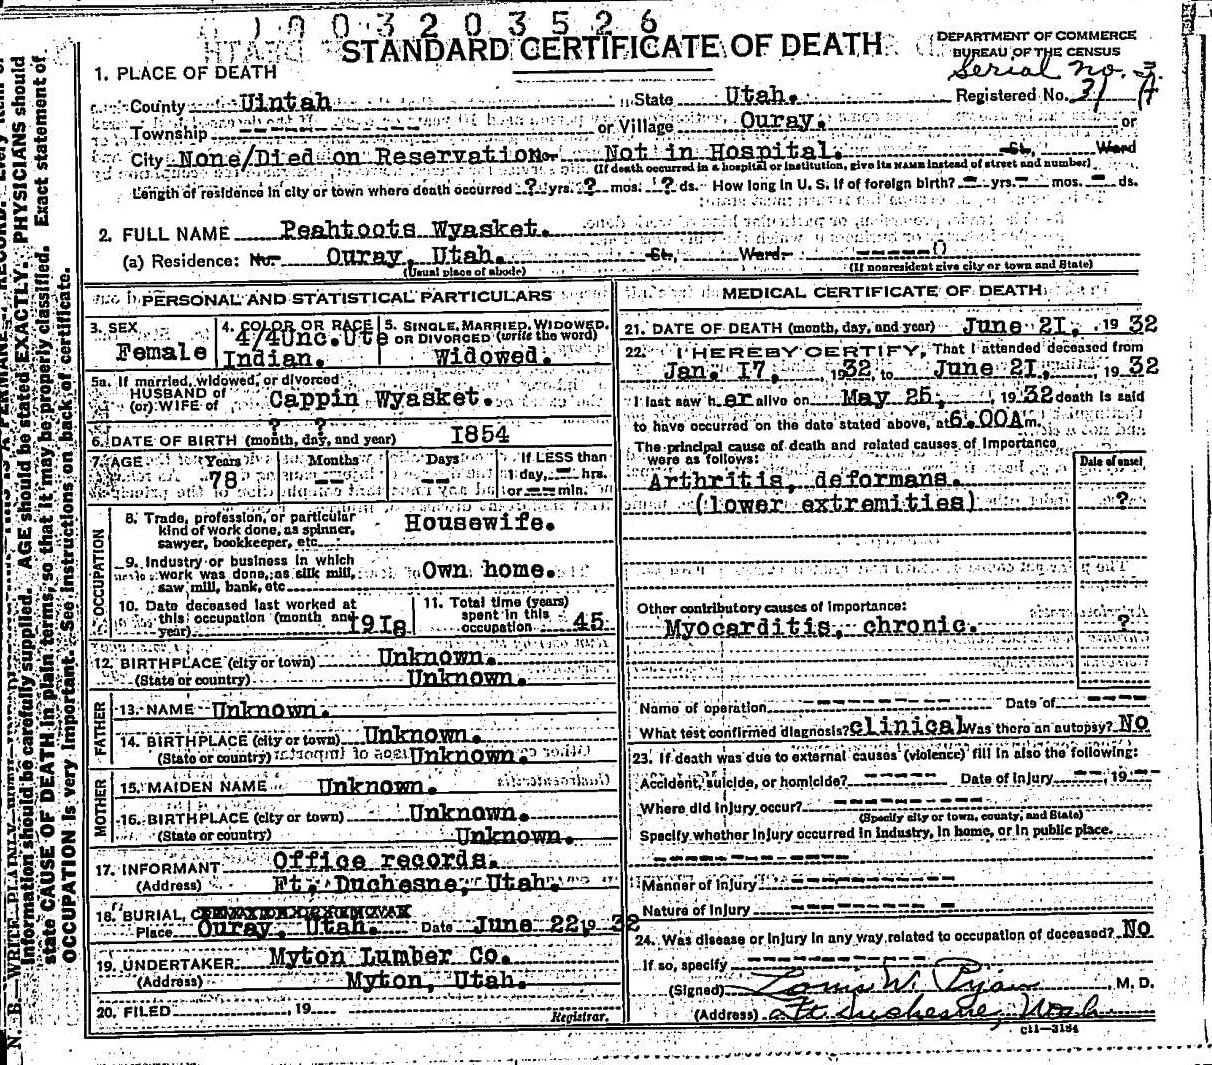 1003203526
STANDARD CERTIFICATE OF DEATH
DEPARTMENT OF COMMERCE
BUREAU OF THE CENSUS
Serial No. 3.
1. PLACE OF DEATH
County Uintah State Utah. Registered No. 31 A
Township ---------- or Village Ouray. or
City None/Died on Reservation. No. Not in Hospital. St., Ward
(If death occurred in a hospital or institution, give its NAME instead of street and number)
Length of residence in city or town where death occurred ? yrs. ? mos. ? ds. How long in U. S. if of foreign birth? - yrs. - mos. - ds.
2. FULL NAME Peahtoots Wyasket.
(a) Residence: No. Ouray, Utah. St., Ward. -----0
(Usual place of abode) (If nonresident give city or town and State)
PERSONAL AND STATISTICAL PARTICULARS
3. SEX
Female
4. COLOR OR RACE
4/4Unc.Ute
Indian.
5. SINGLE, MARRIED, WIDOWED,
OR DIVORCED (write the word)
Widowed.
5a. If married, widowed, or divorced
HUSBAND of
(or) WIFE of Cappin Wyasket.
? ?
6. DATE OF BIRTH (month, day, and year) 1854
7. AGE Years Months Days If LESS than
78 -- -- 1 day, -- hrs.
or -- min.
OCCUPATION
8. Trade, profession, or particular
kind of work done, as spinner,
sawyer, bookkeeper, etc. Housewife.
9. Industry or business in which
work was done, as silk mill,
saw mill, bank, etc. Own home.
10. Date deceased last worked at
this occupation (month and
year) 1918
11. Total time (years)
spent in this
occupation 45
12. BIRTHPLACE (city or town) Unknown.
(State or country) Unknown.
FATHER
13. NAME Unknown.
14. BIRTHPLACE (city or town) Unknown.
(State or country) Unknown.
MOTHER
15. MAIDEN NAME Unknown.
16. BIRTHPLACE (city or town) Unknown.
(State or country) Unknown.
17. INFORMANT Office records.
(Address) Ft. Duchesne, Utah.
18. BURIAL,
Place Ouray, Utah. Date June 22, 19 32
19. UNDERTAKER Myton Lumber Co.
(Address) Myton, Utah.
20. FILED , 19
Registrar.
MEDICAL CERTIFICATE OF DEATH
21. DATE OF DEATH (month, day, and year) June 21, 19 32
22. I HEREBY CERTIFY, That I attended deceased from
Jan. 17, 1932, to June 21, 19 32
I last saw her alive on May 25, 19 32 death is said
to have occurred on the date stated above, at 6.00A m.
The principal cause of death and related causes of importance
were as follows:
Date of onset
Arthritis, deformans.
(lower extremities) ?
Other contributory causes of importance:
Myocarditis, chronic. ?
Name of operation --------- Date of ----
What test confirmed diagnosis? clinical Was there an autopsy? No
23. If death was due to external causes (violence) fill in also the following:
Accident, suicide, or homicide? ----- Date of injury -- 19 --
Where did injury occur? ----------
(Specify city or town, county, and State)
Specify whether injury occurred in industry, in home, or in public place.
-----------
Manner of injury ----------
Nature of injury ----------
24. Was disease or injury in any way related to occupation of deceased? No
If so, specify ----------
(Signed) , M. D.
(Address) Ft. Duchesne, Utah
c11—3184
N. B.—WRITE PLAINLY
information should be carefully supplied. AGE should be stated EXACTLY. PHYSICIANS should
state CAUSE OF DEATH in plain terms, so that it may be properly classified. Exact statement of
OCCUPATION is very important. See instructions on back of certificate.